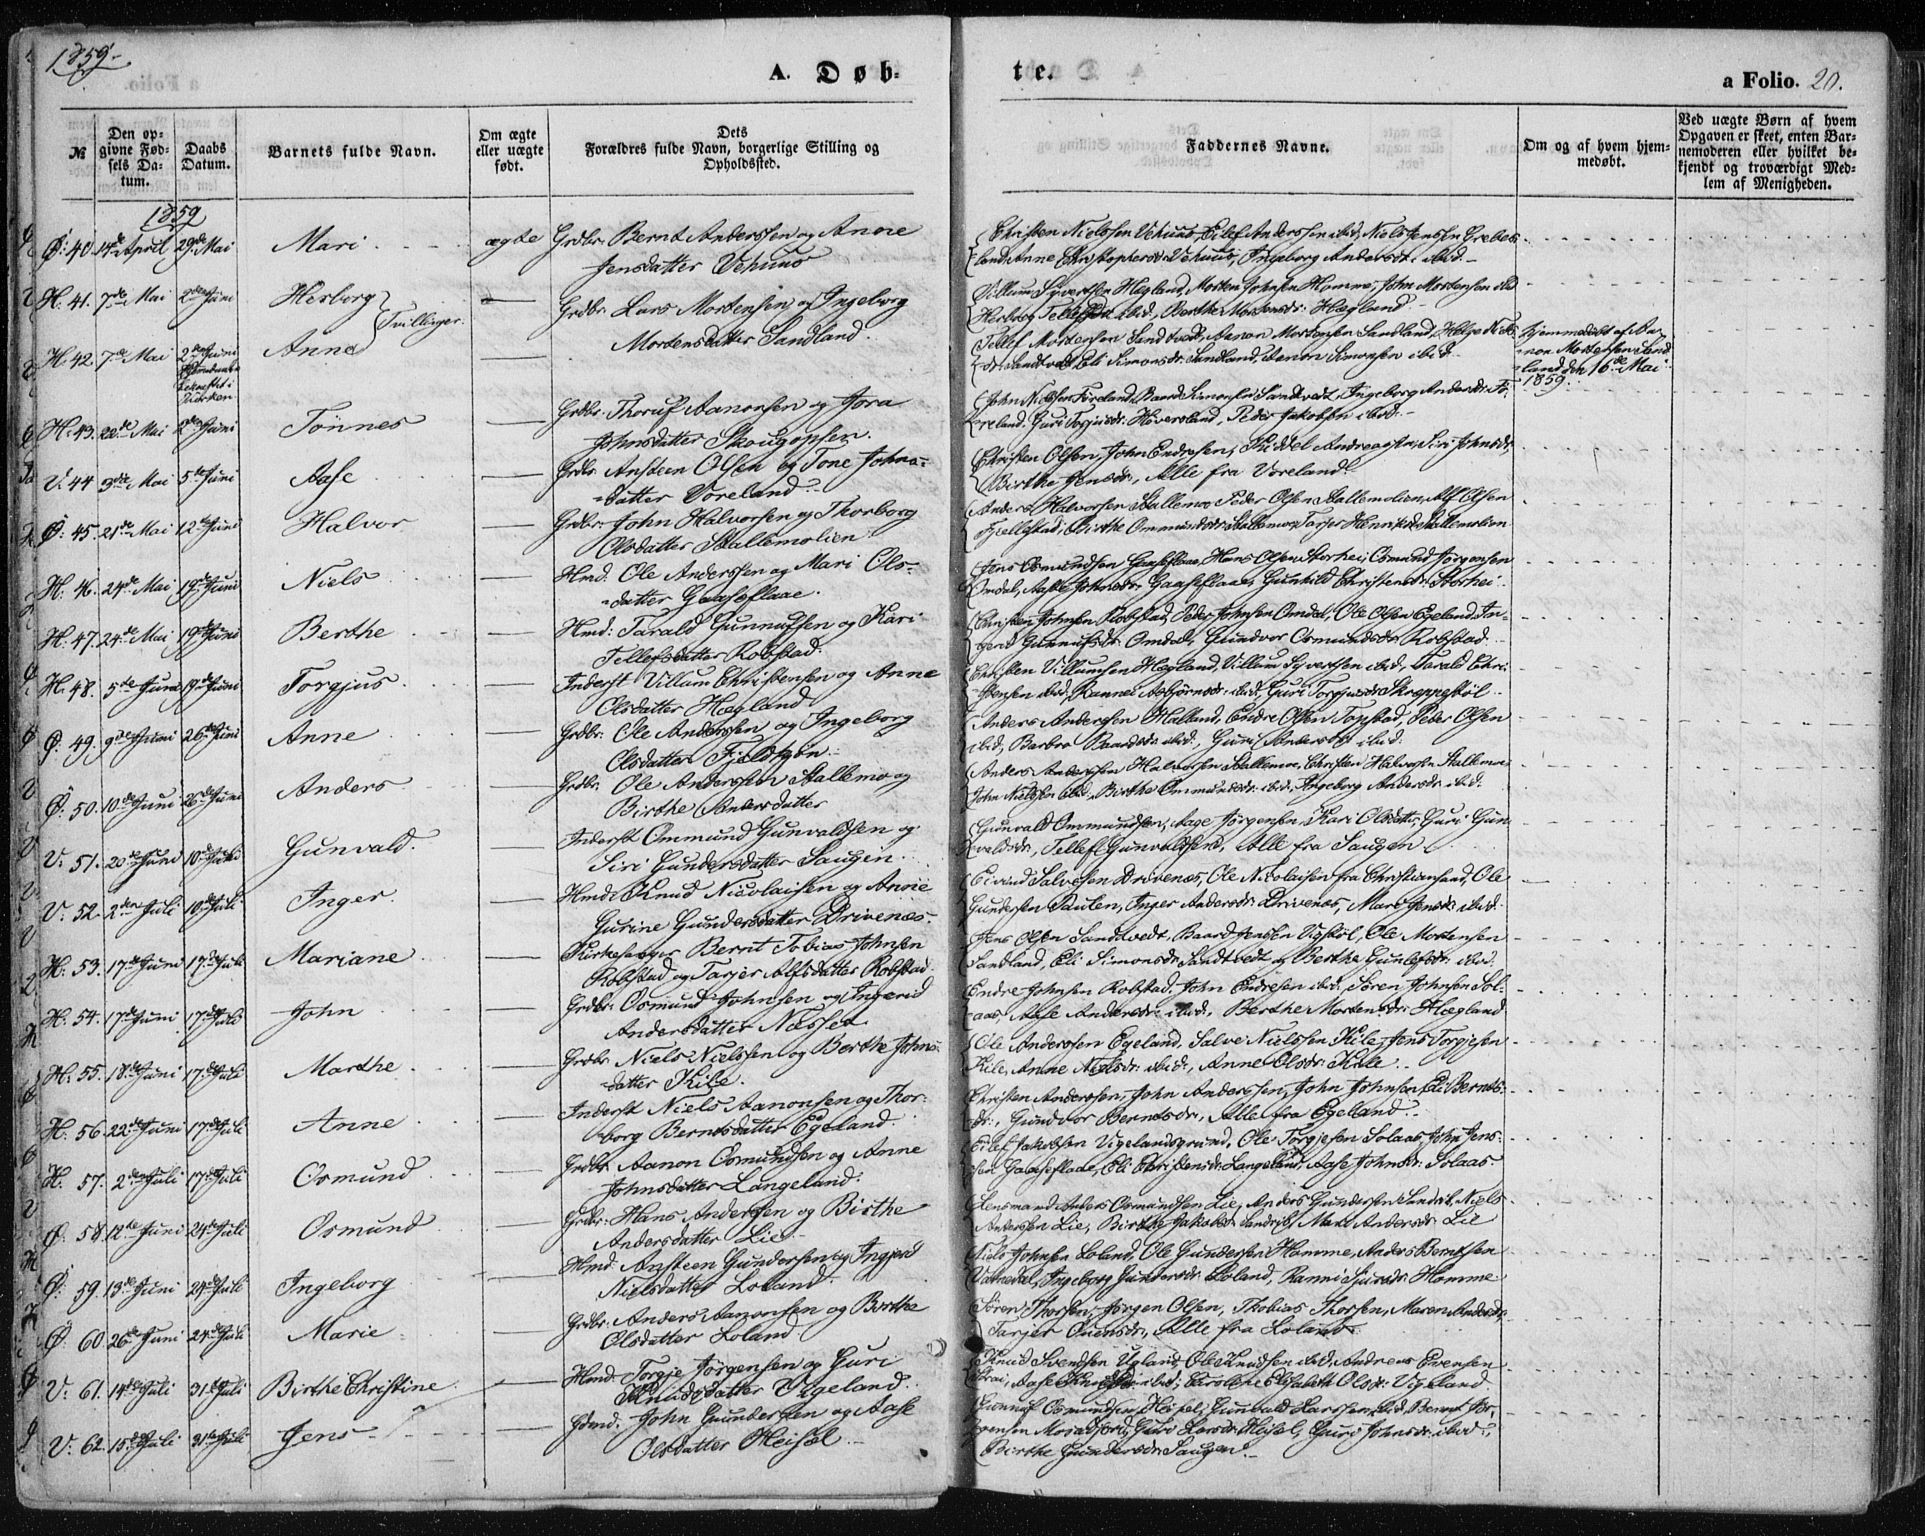 1859.
A. Døb-
te.
a Folio. 20.
№
Den op-
givne Fød-
sels Da-
tum.
Daabs
Datum.
Barnets fulde Navn.
Om ægte
eller uægte
født.
Dets
Forældres fulde Navn, borgerlige Stilling og
Opholdssted.
Faddernes Navne.
Om og af hvem hjem-
medøbt.
Ved uægte Børn af hvem
Opgaven er skeet, enten Bar-
nemoderen eller hvilket be-
kjendt og troværdigt Med-
lem af Menigheden.
1859
Ø: 40. 14de April 29de Mai Mari ægte Grdbr. Bernt Anderssen og Anne
Jensdatter Vehuus
Christen Nielssen Vehuus, Eilef Anderssen ibid, Niels Jenssen Grebes-
land, Anne Christophersdr. Vehuus, Ingeborg Andersdr. ibid.
H. 41. 7de Mai 2den Juni Herborg Tvillinger. Grdbr. Lars Mortensen og Ingeborg
Mortensdatter Sandland.
Villum Syvertsen Hægland, Morten Johnsen Homme, John Mortensen ibid
Herborg ibid, Berthe Mortensdr. Hægland.
H. 42. 7de Mai 2den Juni Anne
Bekræftet i
Kirken
Tellef Mortensen Sandtvedt, Aanon Mortensen Sandland, Helge Niels-
dr. Sandtvedt, Eli Simonsdr. Sandland, Aanon Simonsen ibid.
hjemmedøbt af Aa-
non Mortensen Sand-
land den 16de Mai
1859.
H. 43. 20de Mai 2den Juni Tønnes Grdbr. Aanonsen og Jora
Johnsdatter Skougopsen.
John Nielsen Føreland, Baard Simonsen Sandtvedt, Ingeborg Andersdr. Fø-
reland, Guri Torjusdr. Høversland, Peder Jakobsen ibid.
V. 44 3die Mai 5te Juni Aase Grdbr. Ansteen Olsen og Tone Johns-
datter Voreland
Christen Olsen, John Endresen, Andreassen, Siri Johnsdr,
Birthe Jensdr, Alle fra Voreland.
Ø: 45. 21de Mai 12te Juni Halvor Grdbr. John Halvorsen og Thorborg
Olsdatter Stallemolien
Anders Halvorsen Stallemo, Peder Olsen Stallemolien, Alf Olsen
Fjellestad, Birthe Ommundsdr. Stallemo, Tarjer Stallemolien
H. 46. 24de Mai 19de Juni Niels Hmd. Ole Anderssen og Mari Ols-
datter Gaaseflaae.
Jens Osmundsen Gaaseflaae, Hans Olsen Storhei, Osmund Jørgensen
Omdal, Aasle Johnsdr. Gaaseflaae, Gunhild Christensdr. Storhei.
H. 47. 24de Mai 19de Juni Berthe Hmd: Tarald Gunnufsen og Kari
Tellefsdatter Robstad.
Christen Johnsen Robstad, Peder Johnsen Omdal, Ole Olsen Egeland, In-
gerid Gunnufsdr. Omdal, Gundvor Osmundsdr. Robstad
H. 48. 5te Juni 19de Juni Torgjus Inderst Villum Christensen og Anne
Olsdatter Hægland
Christen Villumsen Hægland, Villum Syvertsen ibid, Tarald Chri-
stensen ibid, Rannei Asbjørnsdr. ibid, Guri Torgjusdr. Skreppestøl.
Ø. 49. 9de Juni 26de Juni Anne Grdbr. Ole Anderssen og Ingeborg
Olsdatter
Anders Anderssen Halland, Endre Olsen Topstad, Peder Olsen
ibid, Barbro Baardsdr. ibid, Guri Andersdr. ibid:
Ø. 50. 10de Juni 26de Juni Anders Grdbr. Ole Anderssen Stallemo og
Birthe Andersdatter
Anders Halvorsen Stallemo, Christen Halvorsen Stallemo
John Nielsen ibid, Birthe Ommundsdr. ibid, Ingeborg Andersdr. ibid.
V. 51. 20de Juni 10de Juli Gunvald. Inderst Ommund Gunvaldsen og
Siri Gundersdatter Saugen.
Gunvald Ommundsen, Aage Jørgensen, Kari Olsdatter, Guri Gun-
valdsdr., Tellef Gunvaldsen, Alle fra Saugen
V. 52. 2den Juli 10de Juli Inger. Hmd. Knud Nicolaisen og
Gurine Gundersdatter Drivenæs.
Eivind Salvesen Drivenæs, Ole Nicolaisen fra Christiansand, Ole
Gundersen, Inger Andersdr. Drivenæs, Mari Jensdr. ibid.
H. 53. 17de Juni 17de Juli Mariane Kirkesanger Bernt Tobias Johnsen
Robstad og Tarjer Alfsdatter Robstad.
Jens Olsen Sandtvedt, Baard Jensen, Ole Mortensen
Sandland, Eli Simonsdr. Sandtvedt og Berthe Gunlefsdr. ibid.
H. 54. 17de Juni 17de Juli John Grdbr. Osmund Johnsen og Ingerid
Andersdatter Næsset
Endre Johnsen Robstad, John Endresen ibid, Søren Johnsen Sol-
aas, Aase Andersdr. ibid, Berthe Mortensdr. Hægland
H. 55. 18de Juni 17de Juli Marthe Grdbr. Niels Nielssen og Berthe Johns-
datter Kile.
Ole Anderssen Egeland, Salve Nielssen Kile, Jens Torgjesen
Kile, Anne Nielsdr. ibid, Anne Olsdr. Kile.
H. 56. 22de Juni 17de Juli Anne Inderst Niels Aanonsen og Thor-
borg Berntsdatter Egeland.
Christen Anderssen, John Anderssen, John Johnsen, Eli Bernts-
dr., Gundvor Berntsdr., Alle fra Egeland.
H. 57. 2den Juli 17de Juli Osmund Grdbr. Aanon Osmundsen og Anne
Johnsdatter Langeland.
Eilef Jakobsen Vigelandsgrund, Ole Torgjesen Solaas, John Jens-
sen Gaaseflaae, Eli Christensdr. Langeland, Aase Johnsdr. Solaas.
Ø. 58. 12te Juni 24de Juli Osmund Grdbr. Hans Anderssen og Birthe
Andersdatter Lie.
Lensmand Anders Osmundsen Lie, Anders Gundersen Sandrib, Niels
Anderssen Lie, Birthe Jakobsdr. Sandrib, Mari Andersdr. Lie
Ø. 59. 13de Juni 24de Juli Ingeborg Hmd. Ansteen Gundersen og Ingjerd
Nielsdatter Loland.
Niels Johnsen Loland, Ole Gundersen Homme, Anders Berntsen
Vatnedal, Ingeborg Gundersdr. Loland, Ranni Homme.
Ø. 60. 26de Juni 24de Juli Marie Grdbr. Anders Aanonsen og Berthe
Olsdatter Loland
Søren Thorsen, Jørgen Olsen, Thobias Thorsen, Maren Andersdr,
Tarjer, Alle fra Loland.
V. 61. 14de Juli 31te Juli Birthe Christine Hmd. Torje Jørgensen og Guri
Knudsdatter Vigeland.
Knud Svendsen Ugland, Ole Knudsen ibid, Andreas Evensen
Strai, Aase ibid, Caroline Elisabeth Olsdr. Vigeland.
V. 62. 15de Juli 31te Juli Jens Gdmd. John Gundersen og Aase
Olsdatter Heisel
Gunnuf Osmundsen Heisel, Gunvald Larssen ibid, Bernt Jør-
gensen Mosadsjord, Guri Larsdr. Heisel, Guri Johnsdr. ibid,
Birthe Gundersdr. Saugen.